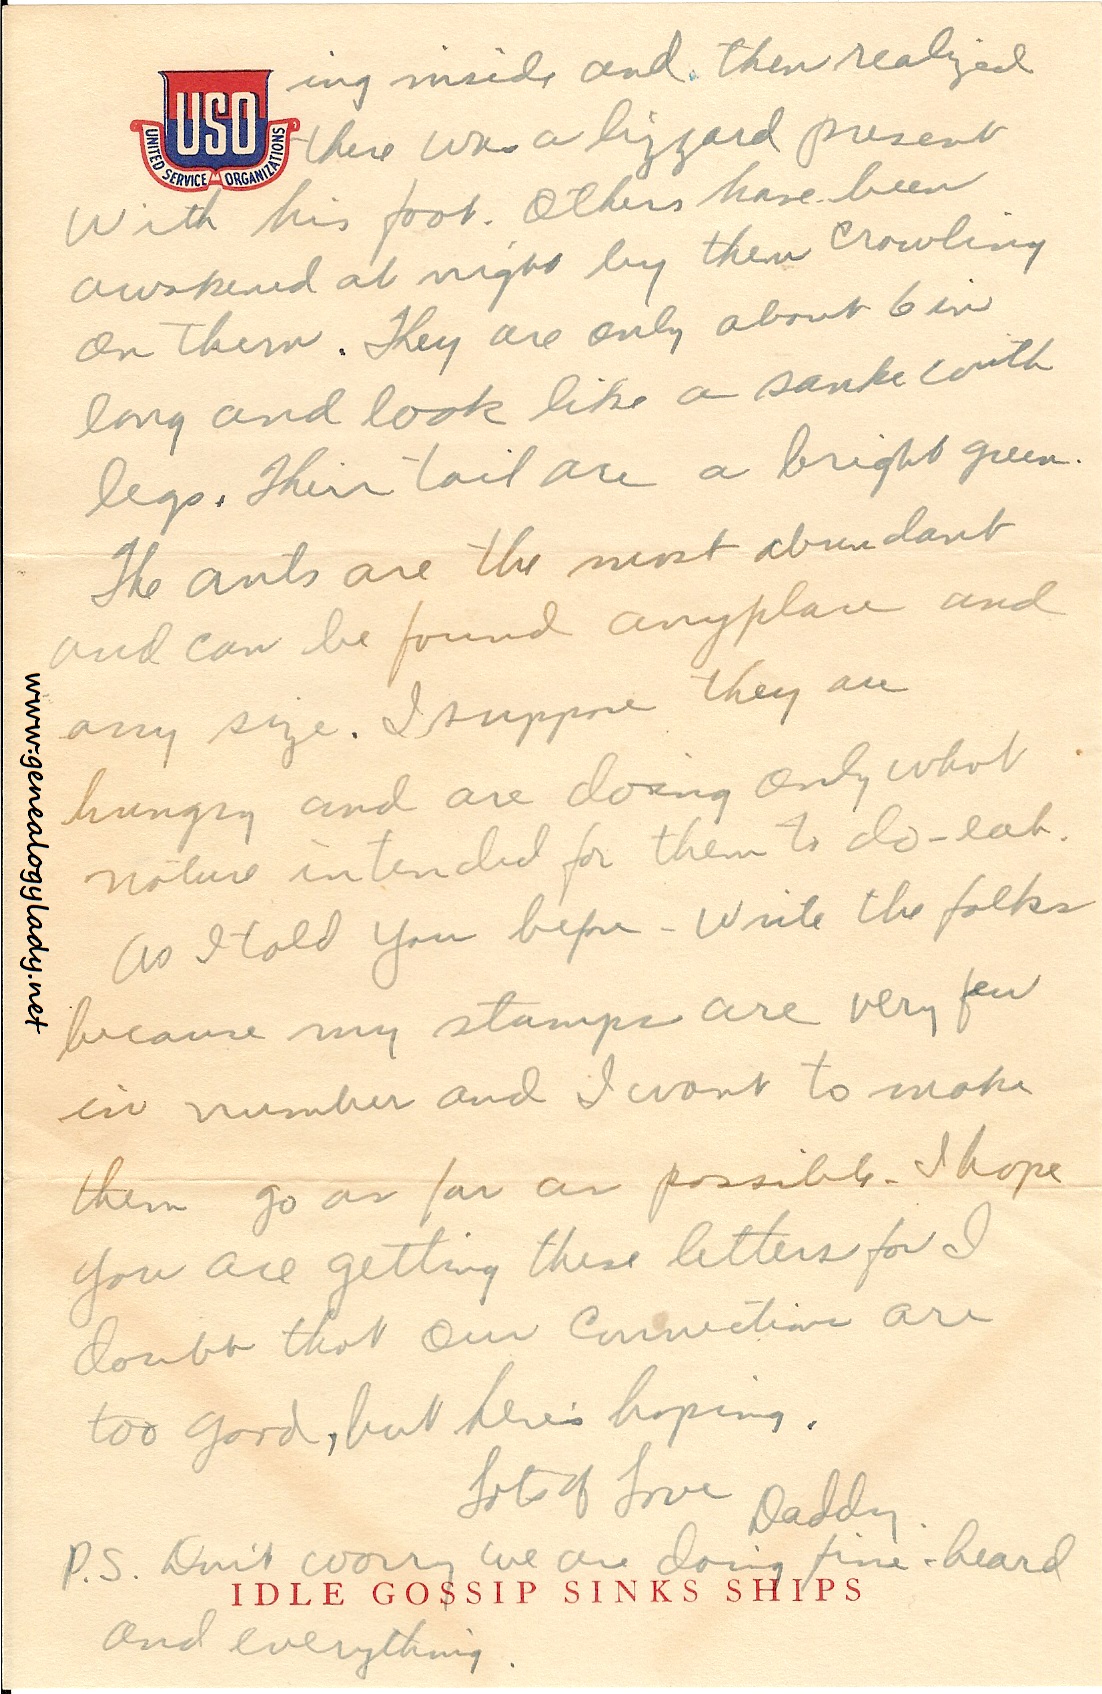 USO
UNITED SERVICE ORGANIZATIONS
ing inside and then realized
there was a lizzard present
with his foot. Others have been
awakened at night by them crawling
on them. They are only about 6 in
long and look like a sanke with
legs. Their tail are a bright green.
The ants are the most abundant
and can be found anyplace and
any size. I suppose they are
hungry and are doing only what
nature intended for them to do-eat.
As I told you before - write the folks
because my stamps are very few
in number and I want to make
them go as far as possible. I hope
you are getting these letters for I
doubt that our connections are
too good, but here's hoping.
Lots of Love Daddy.
P.S. Don't worry we are doing fine - beard
IDLE GOSSIP SINKS SHIPS
and everything.
www.genealogylady.net